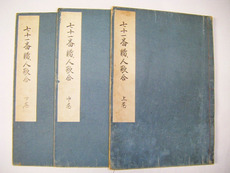 七十一番職人歌合 上巻
七十一番職人歌合 中巻
七十一番職人歌合 下巻